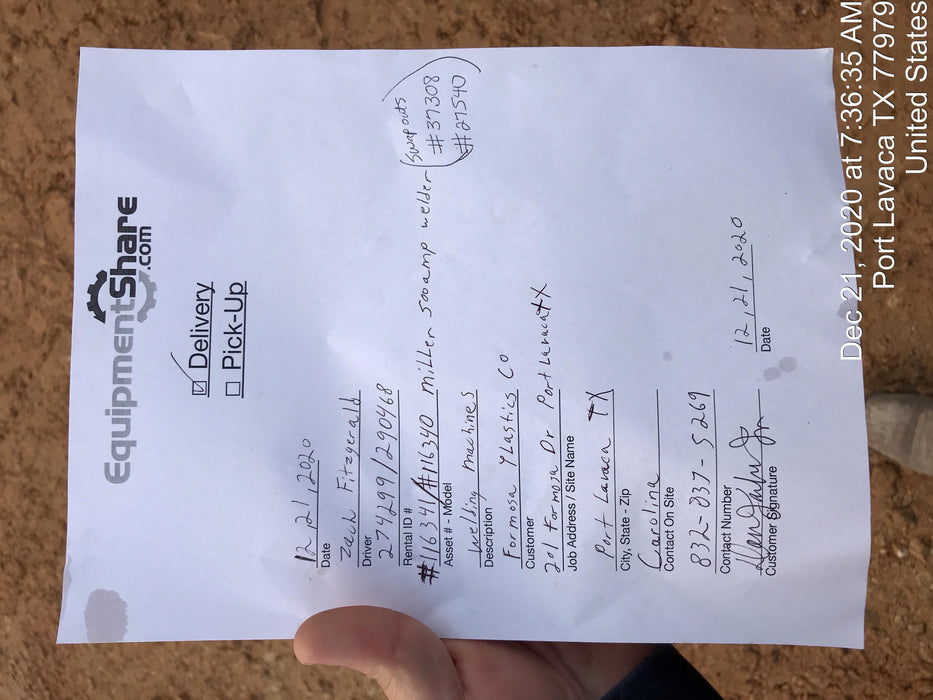 EquipmentShare
.com
☑ Delivery
☐ Pick-Up
12, 21, 2020
Date
Zach Fitzgerald
Driver
274299/290468
Rental ID #
#116341/#116340 Miller 500amp welder (Swap outs
#37308
#27540)
Asset # - Model
Welding machines
Description
Formosa Plastics Co
Customer
201 Formosa Dr Port Lavaca TX
Job Address / Site Name
Port Lavaca TX
City, State - Zip
Carolina
Contact On Site
832-837-5269
Contact Number
12, 21, 2020
Customer Signature
Date
Dec 21, 2020 at 7:36:35 AM
Port Lavaca TX 77979
United States